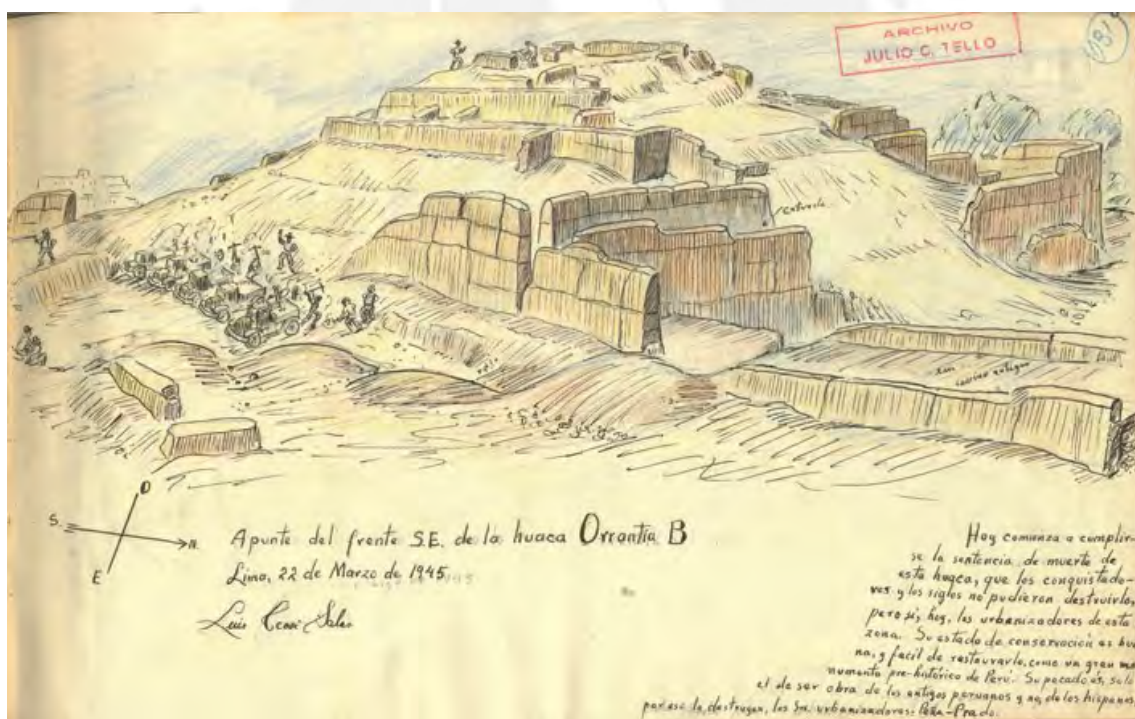 ARCHIVO
JULIO C. TELLO
1131
enlucido
camino antiguo
O
S.
N.
E
Apunte del frente S.E. de la huaca Orrantia B
Lima, 22 de Marzo de 1945
Luis Ccosi Salas
Hoy comienza a cumplir-
se la sentencia de muerte de
esta huaca, que los conquistado-
res y los siglos no pudieron destruirlo,
pero sí, hoy, los urbanizadores de esta
zona. Su estado de conservación es bue
na, y facil de restaurarlo, como un gran mo
numento pre-histórico de Perú. Su pecado es, solo
el de ser obra de los antigos peruanos y no, de los hispanos
por eso lo destruyen, los Sres. urbanizadores: Peña-Prado.